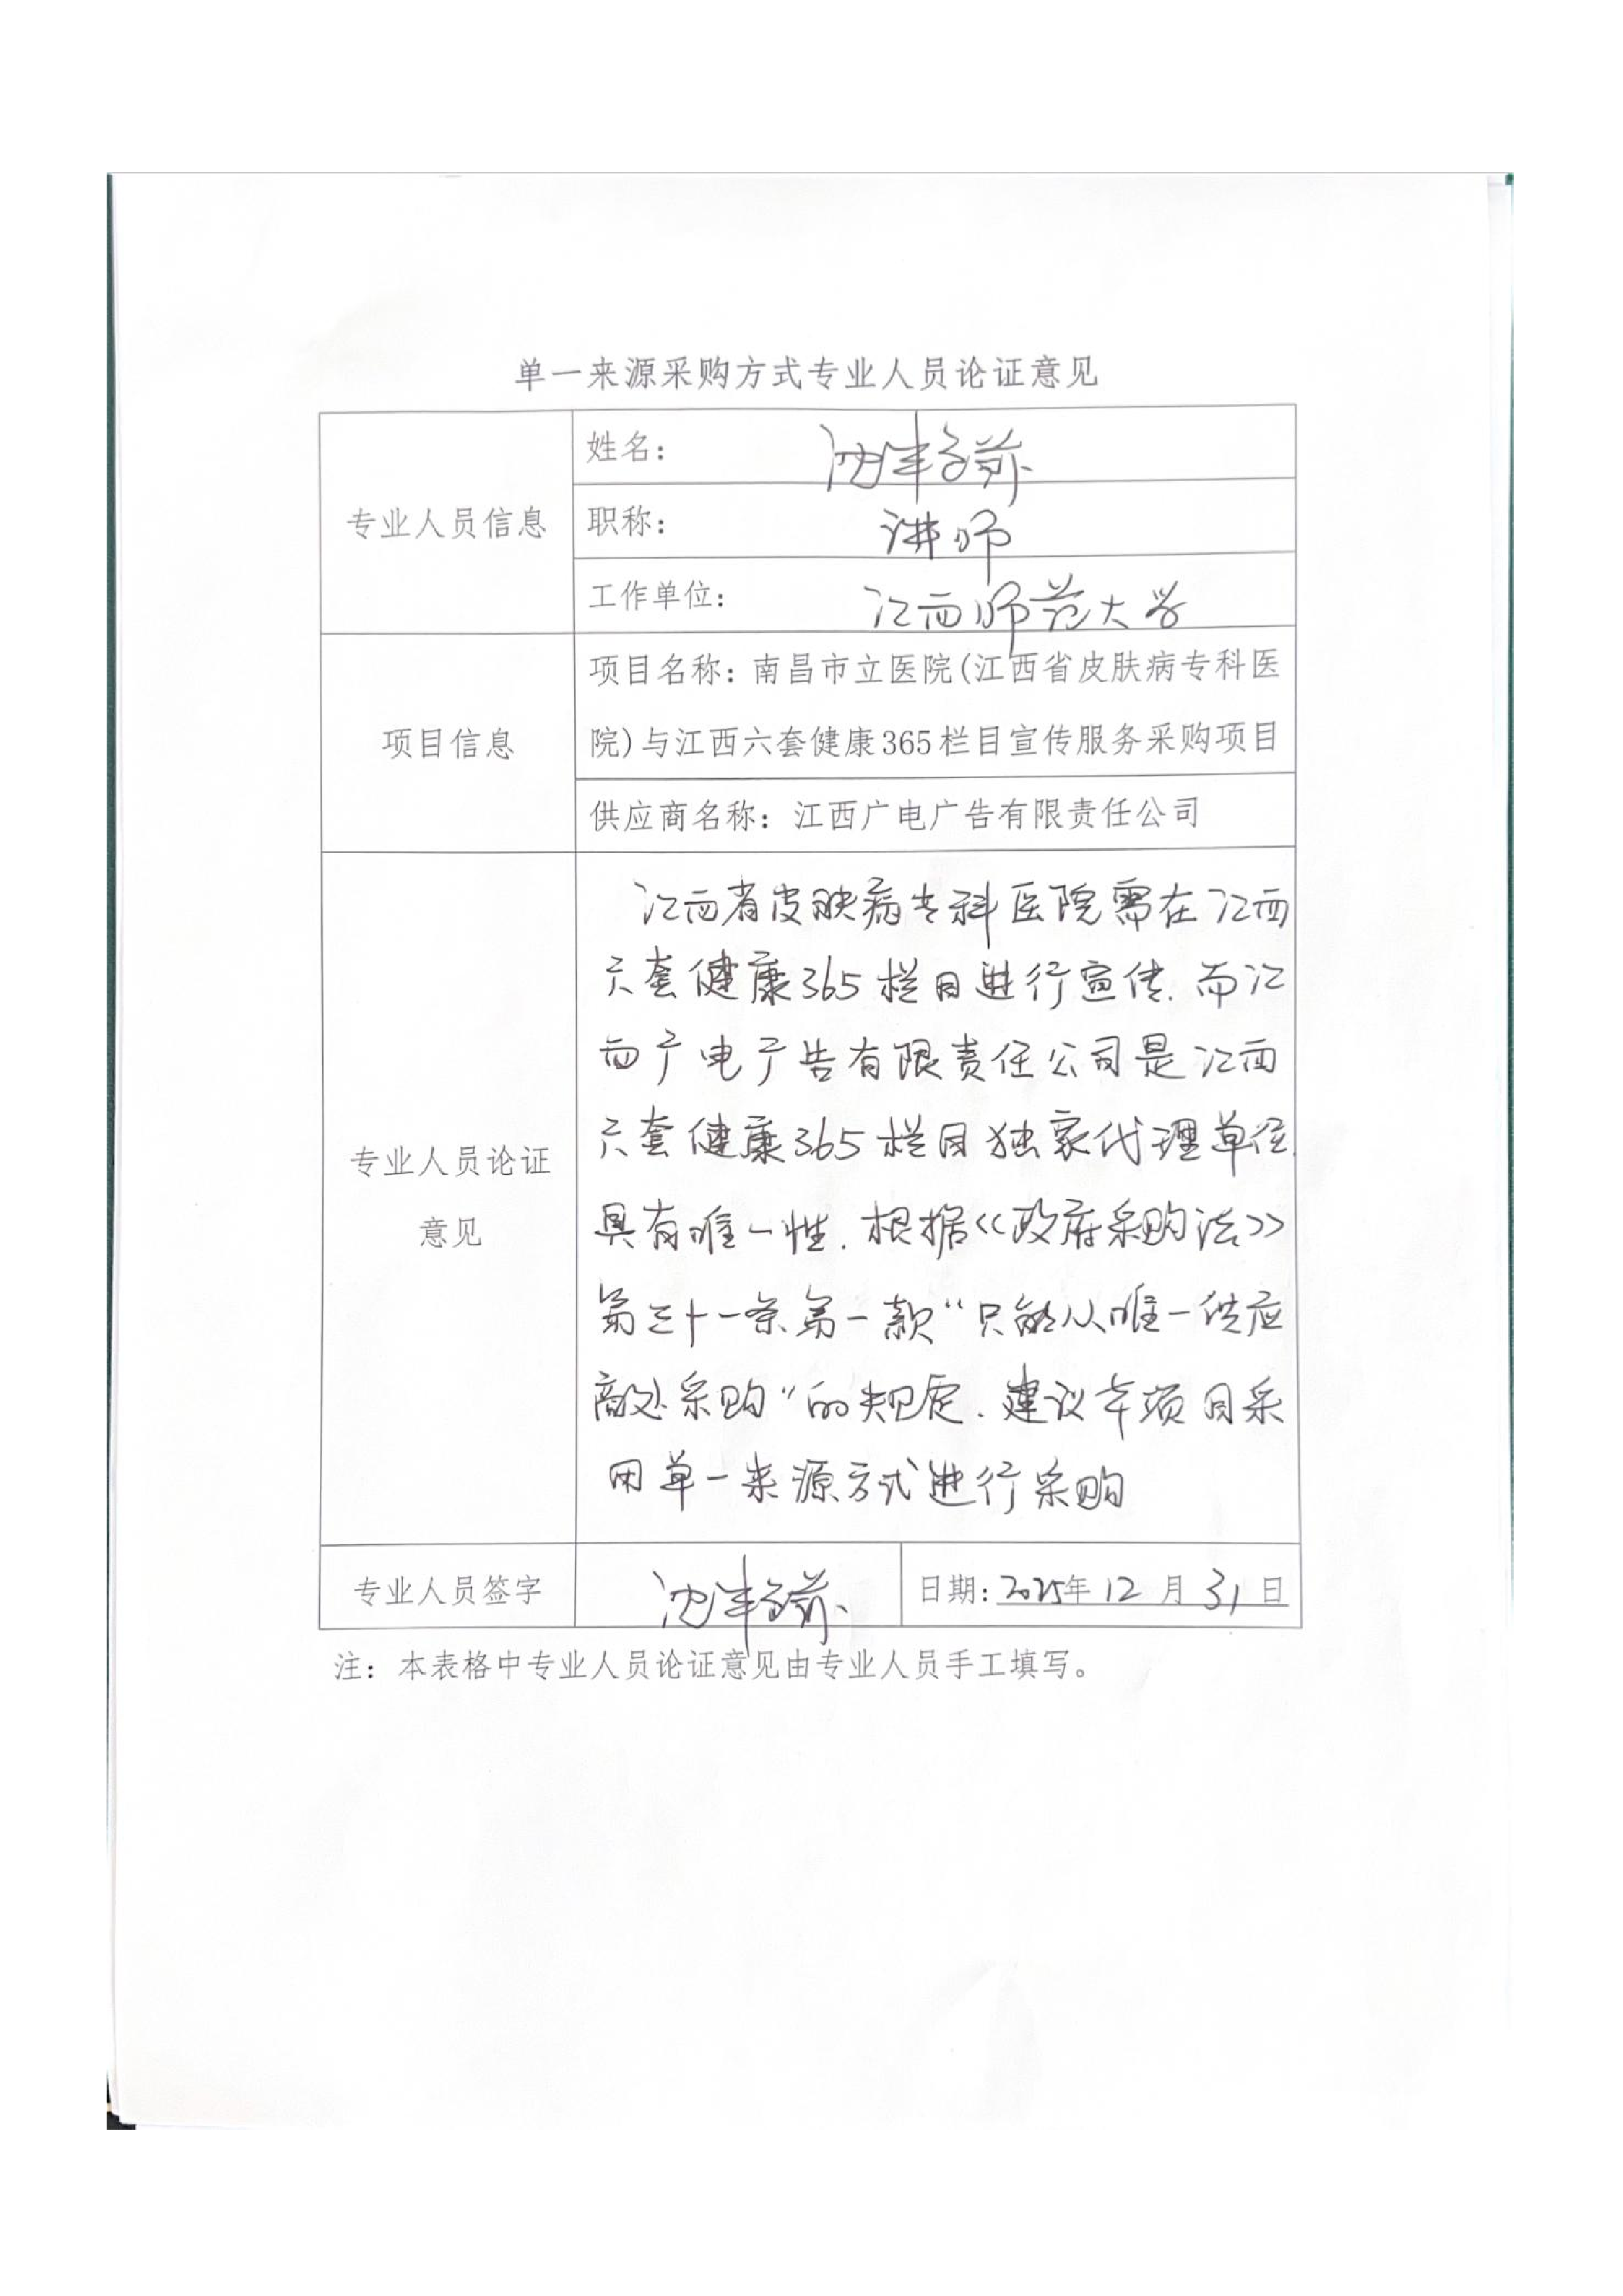 单一来源采购方式专业人员论证意见
专业人员信息
姓名：
职称： 讲师
工作单位： 江西师范大学
项目信息
项目名称：南昌市立医院(江西省皮肤病专科医
院)与江西六套健康365栏目宣传服务采购项目
供应商名称：江西广电广告有限责任公司
专业人员论证
意见
江西省皮肤病专科医院需在江西
六套健康365栏目进行宣传.而江
西广电广告有限责任公司是江西
六套健康365栏目独家代理单位.
具有唯一性.根据《政府采购法》
第三十一条第一款“只能从唯一供应
商处采购”的规定.建议本项目采
用单一来源方式进行采购
专业人员签字
日期：2025年12月31日
注：本表格中专业人员论证意见由专业人员手工填写。